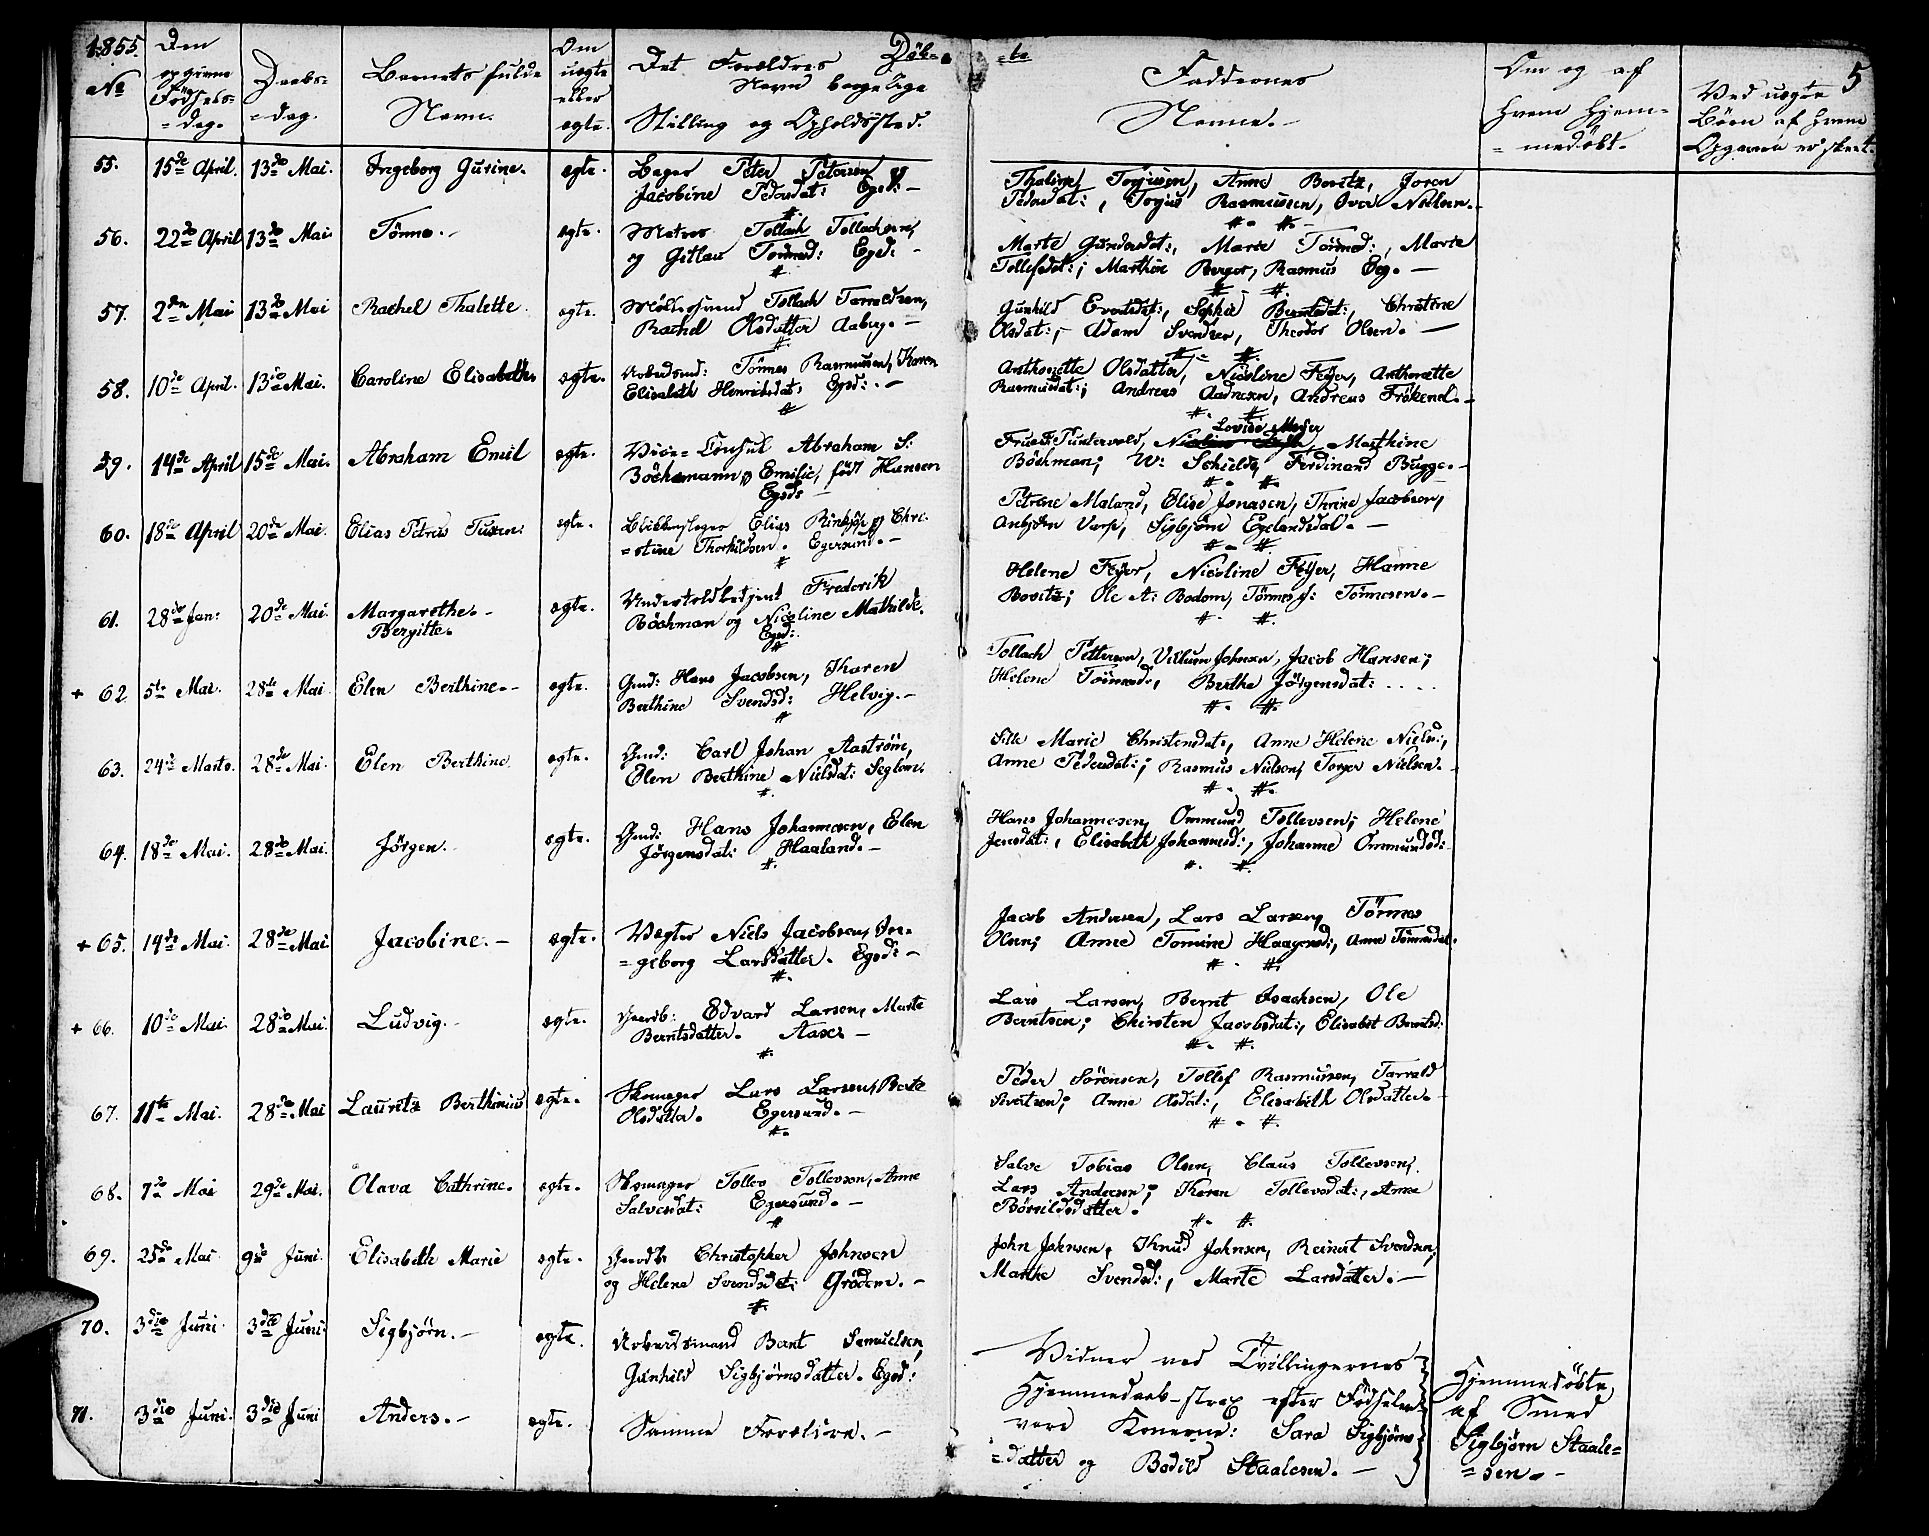 1855. Den Om Døb= =te 5
No opgivne Daabs= Barnets fulde uægte Det Forældres Faddernes Om og af
Fødsels= =dag. Navn. eller Navn borgelige Navne. hvem hjem= Ved uægte
=dag. ægte. Stilling og Opholdssted. =medøbt. Børn af hvem
Opgaven er skeet.
55. 15de April. 13de Mai. Ingeborg Gurine. ægte. Bager Peter Petersen og
Jacobine Pedersdat: Egsd: Thaline Torjusen, Anne Bovitz, Joren
Pedersdat:, Torjus Rasmussen, Iver Nielsen.
56. 22de April 13de Mai. Tönnes. ægte. Matros Tollach Tollachsen,
og Gitlau Tønnesd: Egsd: Marte Gundersdat:, Marte Tønnesd:, Marte
Tollefsdat:; Marthin Berger, Rasmus Eeg.
57. 2den Mai 13de Mai Rachel Thalette. ægte. Møllersvend Tollach Tarraldsen,
Rachel Olsdatter Aaberg. Gunhild Evertsdat:, Sophie Berntsdat:, Christine
Olsdat:, Adam Svendsen, Theodor Olsen.
58. 10de April. 13de Mai. Caroline Elisabeth. ægte. Arbeidsmd: Tönnes Rasmussen, Karen
Elisabeth Henriksdat: Egsd: Anthonette Olsdatter, Nicoline Feyer, Anthonette
Rasmusdat:; Andreas Aadnesen, Andreas Frökend.
59. 14de April 15de Mai. Abraham Emil ægte. Vice=Consul Abraham S:
Böckmann og Emilie, født Hansen
Egsd: Lovise Meyer
Frue Puntervold, Marthine
Böckman; W: Schielde, Ferdinand Bugge.
60. 18de April 20de Mai. Elias Petreus Tuxen. ægte. Blikkenslager Elias Rinksje og Chri=
=stine Thorkildsen. Egersund. Petrine Maland, Elise Jonassen, Thrine Jacobsen,
Anbjörn Varp, Sigbjörn Egelandsdal.
61. 28de Jan: 20de Mai. Margarethe
Bergitte. ægte. Undertoldbetjent Frederik
Böckman og Nicoline Mathilde.
Egsd: Helene Feyer, Nicoline Feyer, Hanne
Bovitz; Ole A: Bodom, Tönnes J: Tönnesen.
+ 62 5te Mai. 28de Mai Elen Berthine. ægte. Gmd: Hans Jacobsen, Karen
Berthine Svendsd: Helvig. Tollach Pettersen, Villum Johnsen, Jacob Hansen;
Helene Tönnesd:, Berthe Jörgensdat: ....
63. 24de Marts. 28de Mai. Elen Berthine. ægte. Gmd: Carl Johan Aaström,
Elen Berthine Nielsdat: Seglem. Silk Marie Christensdat:, Anne Helene Nielsd:,
Anne Pedersdat:; Rasmus Nielsen, Torger Nielsen.
64. 18de Mai. 28de Mai. Jörgen. ægte. Gmd: Hans Johannesen, Elen
Jörgensdat: Haaland. Hans Johannesen, Ommund Tollevsen; Helene
Jensdat:, Elisabeth Johannesd:, Johanne Ommundsd:
+ 65. 14de Mai. 28de Mai Jacobine. ægte. Vægter Niels Jacobsen, In=
=geborg Larsdatter. Egsd: Jacob Andersen, Lars Larsen, Tönnes
Olsen; Anne Tomine Haagensd:, Anne Tönnesdat.
+ 66. 10de Mai. 28de Mai. Ludvig. ægte. Gaardb: Edvard Larsen, Marte
Berntsdatter. Aase. Lars Larsen, Bernt Isachsen, Ole
Berntsen; Chirsten Jacobsdat:, Elisabet Berntsd:
67. 11te Mai. 28de Mai Lauritz Berthinius ægte. Skomager Lars Larsen, Berte
Olsdatter. Egersund. Peder Sörensen, Tollef Rasmussen, Tarrald
Sivertsen; Anne Olsdat:, Elisabeth Olsdatter.
68. 7de Mai 29de Mai. Olava Cathrine. ægte. Skomager Tollev Tollevsen, Anne
Salvesdat: Egersund. Salve Tobias Olsen, Claus Tollevsen,
Lars Andersen; Karen Tollevsdat:, Anne
Börrildsdatter.
69. 25de Mai 9de Juni. Elisabeth Marie ægte. Gaardb: Christopher Johnsen
og Helene Svendsdat: Grödem. John Johnsen, Knud Johnsen, Reinert Svendsen,
Marthe Svendsd:, Marte Larsdatter.
70. 3die Juni. 3die Juni. Sigbjörn. ægte. Arbeidsmand Bent Samuelsen,
Gunhild Sigbjörnsdatter. Egsd: Vidner ved Tvillingernes
Hjemmedaab strax efter Fødselen Hjemmedöbte
71. 3die Juni. 3die Juni Anders. ægte. Samme Forældre. vare Konerne: Sara Sigbjörns= af Smed
=datter og Bodild Staalesen. Sigbjörn Staale=
=sen.